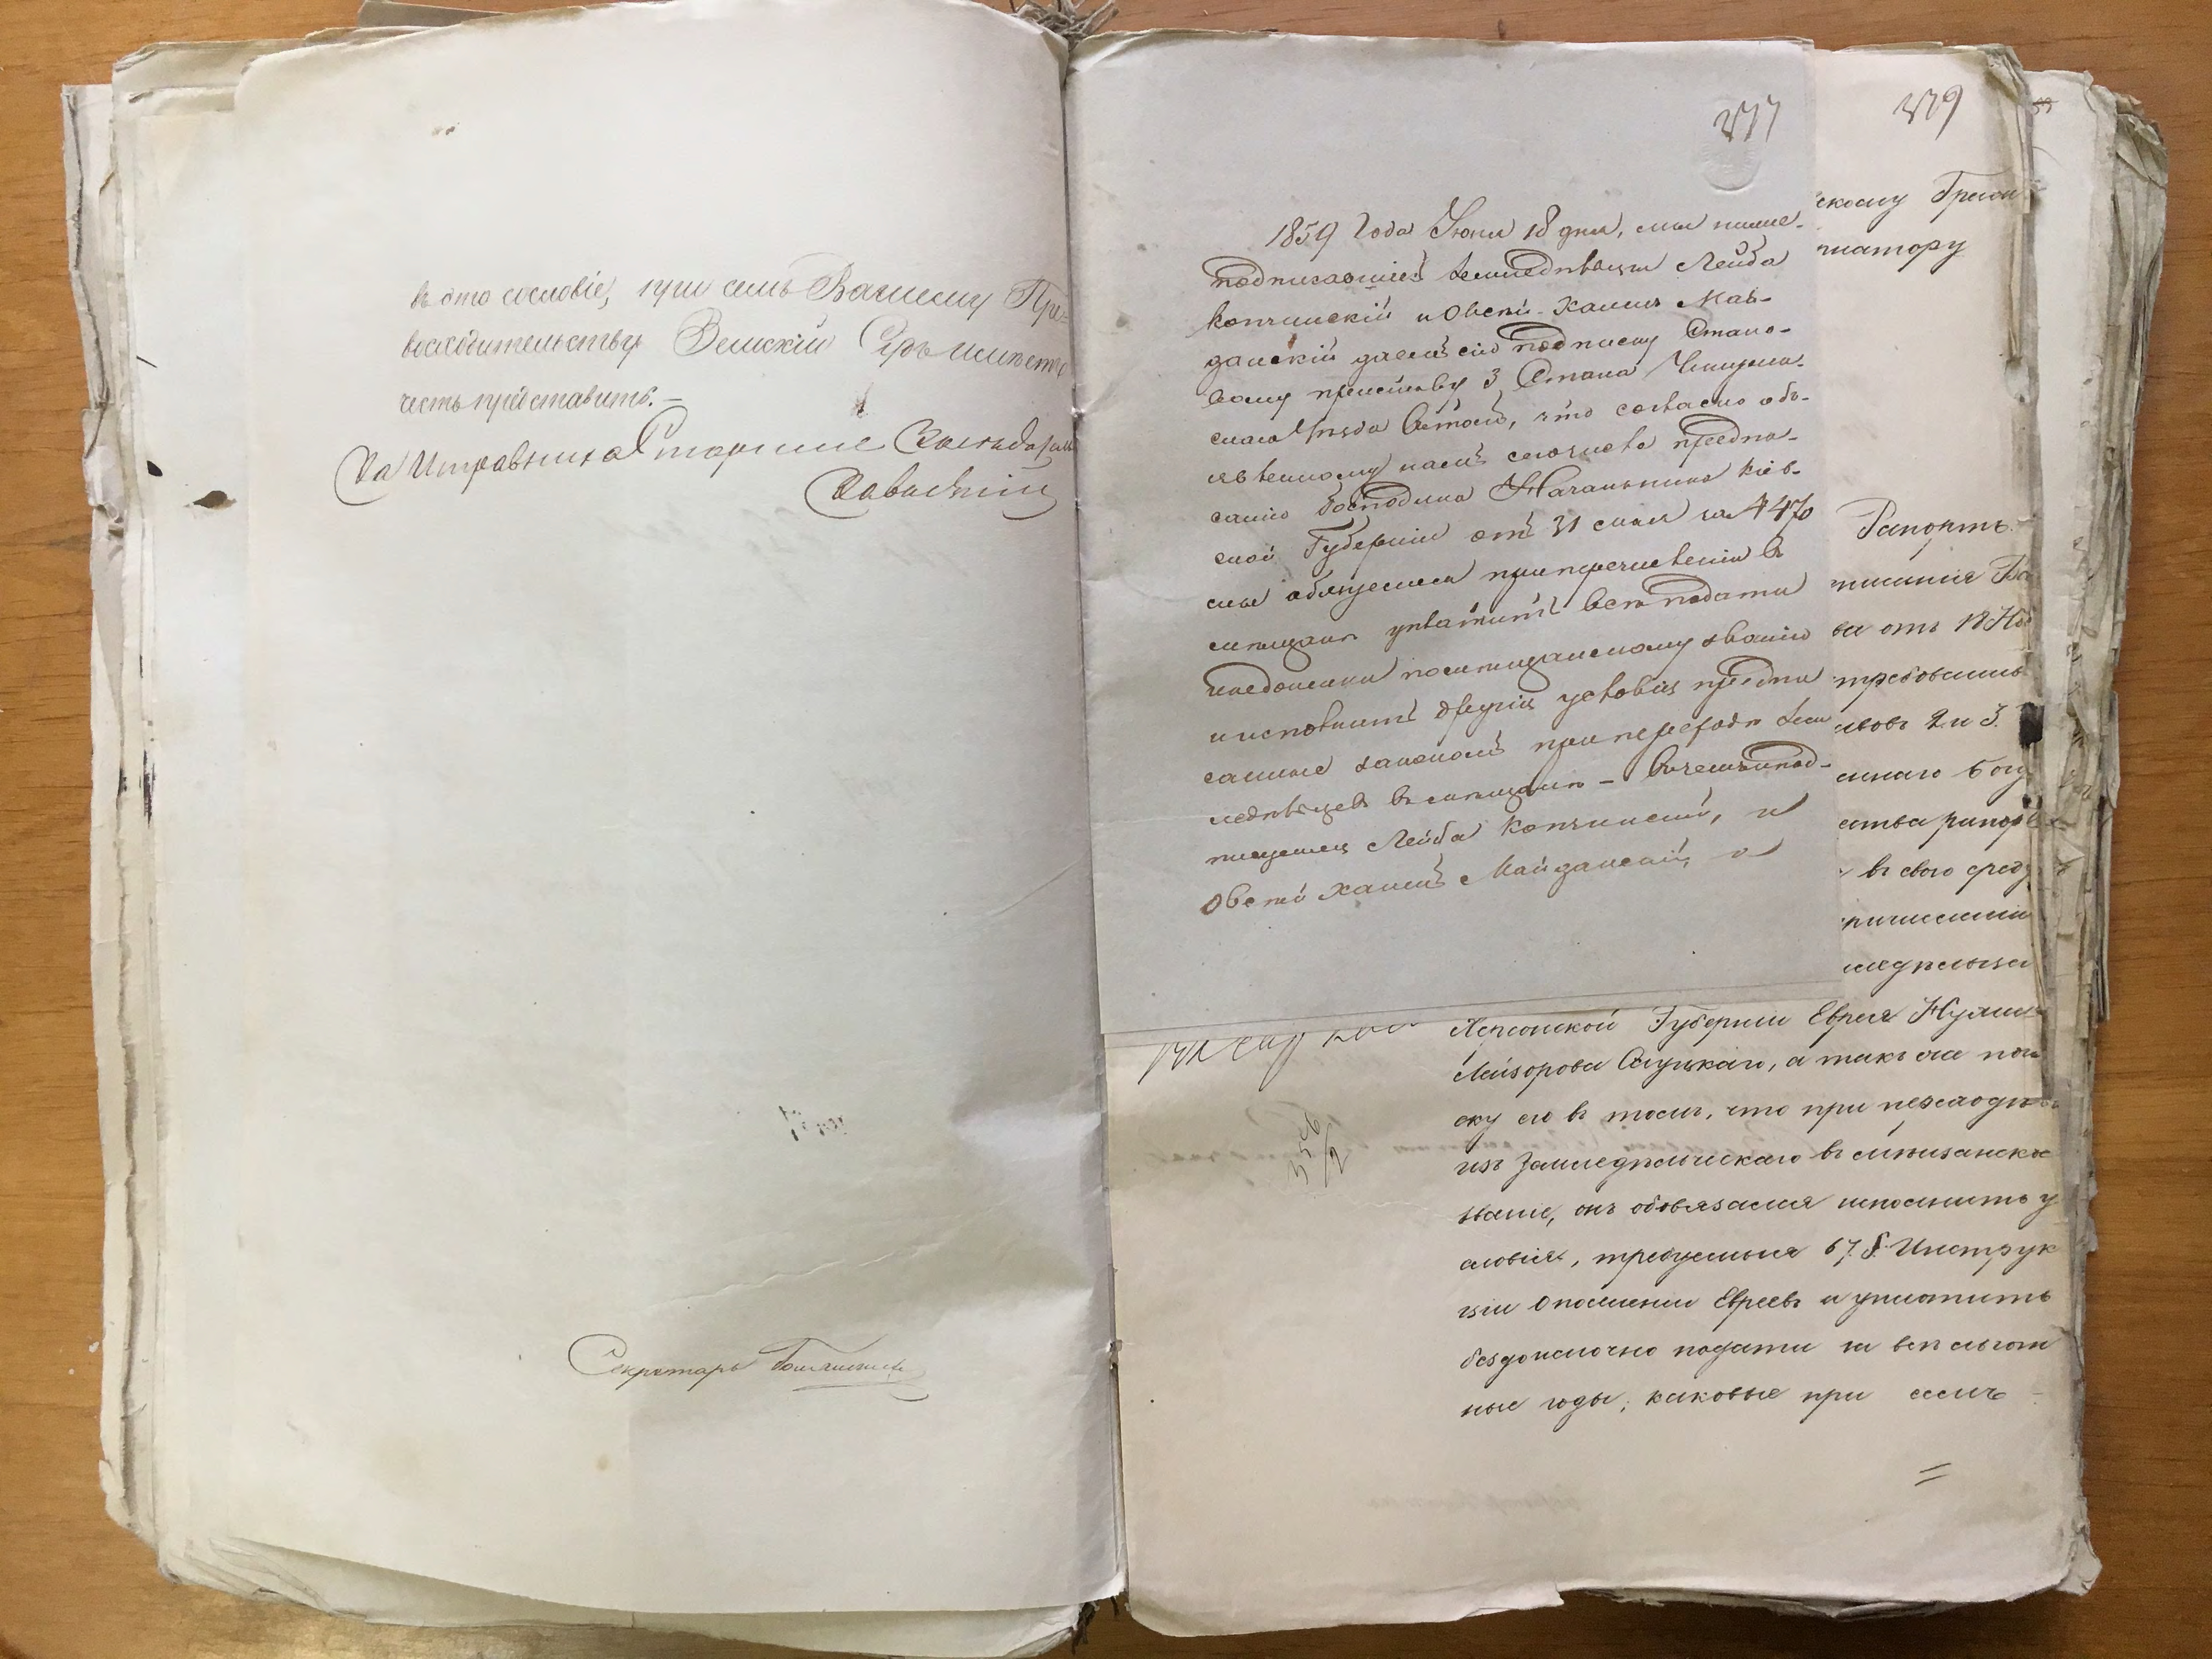 въ это сословіе, при семъ Вашему Пре=
восходительству Земскій Судъ имѣетъ
честь представить.—
За Исправника Старшій Засѣдатель
Секретарь
377
1859 года Іюня 18 дня, мы ниже-
подписавшіеся земледѣльцы Лейба
Копчинскій и Овсей-Хаимъ Май-
данскій даемъ сію подписку Стано-
вому приставу 3 Стана
скаго Уѣзда въ томъ, что согласно объ-
явленному намъ предпи-
санію Господина Начальника Кіев-
ской Губерніи отъ 31 мая за № 4470
мы обязуемся при перечисленіи въ
мѣщане уплатить всѣ подати
и недоимки по мѣщанскому званію
и исполнить другія условія предпи
санные закономъ при переходѣ зем
ледѣльцевъ въ мѣщане — въ чемъ и под-
писуемся Лейба Копчинскій, и
Овсей Хаимъ Майданскій
379
скому Граж
натору
Рапортъ.
писанія Ва
ва отъ 18 Но
требовании
2 и 3.
скаго Богу
ства рапор
въ свою среду
причислении
земледѣльца
Херсонской Губерніи Еврея
Лейзорова Слуцкаго, а такъ же подпи
ску его въ томъ, что при переходѣ
изъ земледѣльческаго въ мѣщанское
званіе, онъ обовязался исполнить у
словія, требуемыя 67. §. Инструк
ціи о поселеніи Евреевъ и уплатить
бездоимочно подати за всѣ льгот
ные годы; каковые при семъ
=
356/2